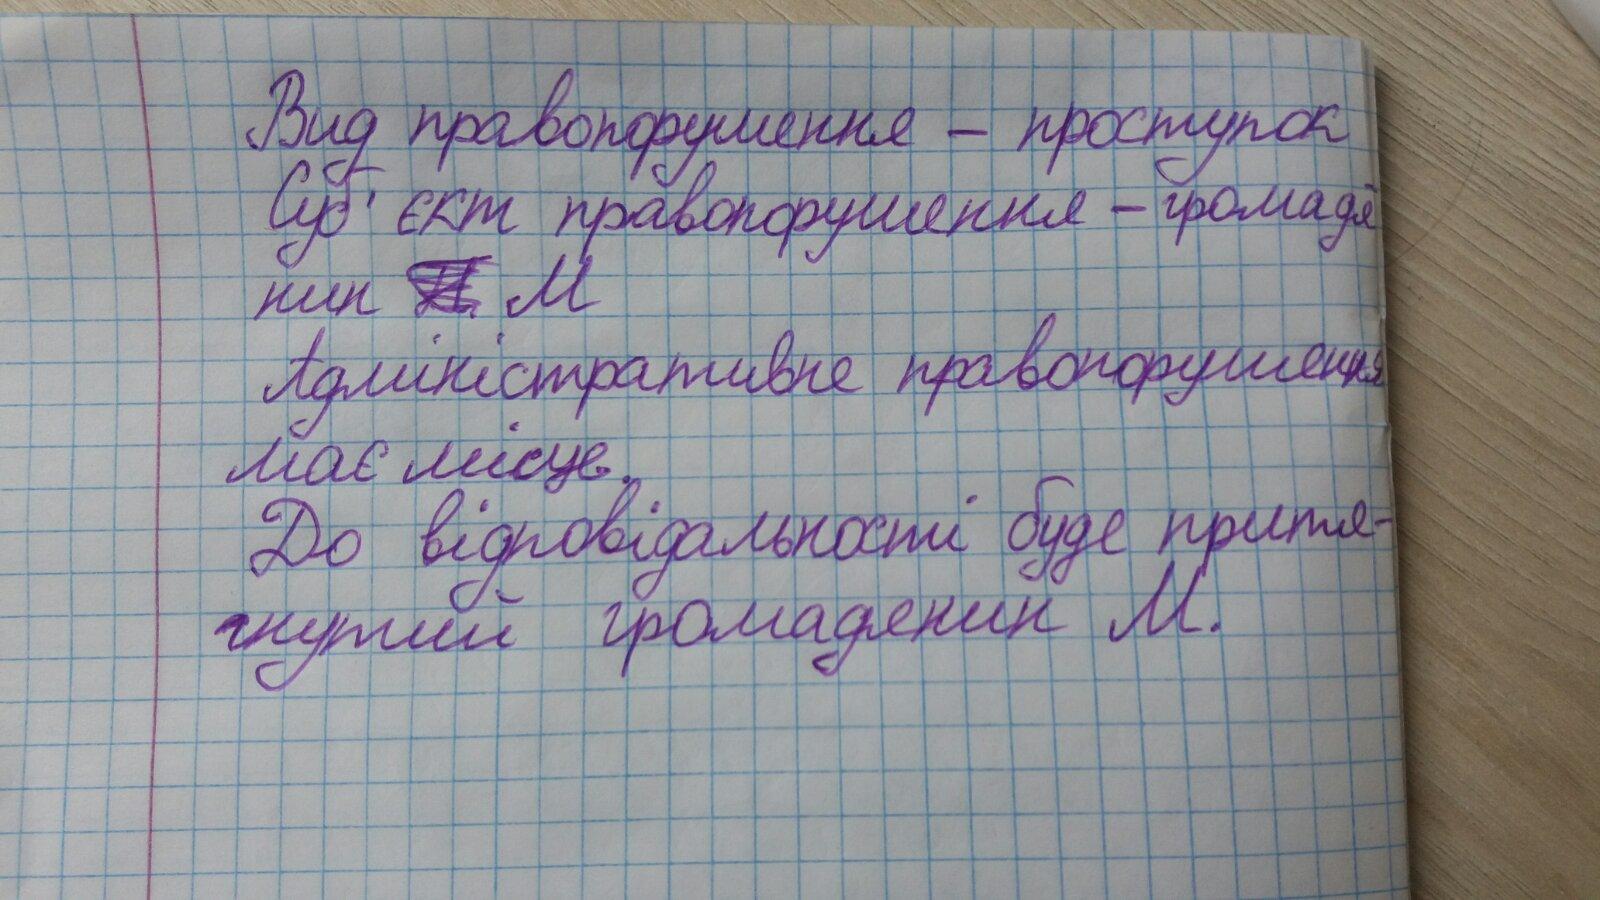 Вид правопорушення – проступок
Суб'єкт правопорушення – громадя
нин М
Адміністративне правопорушення
має місце.
До відповідальності буде притя-
гнутий громадянин М.